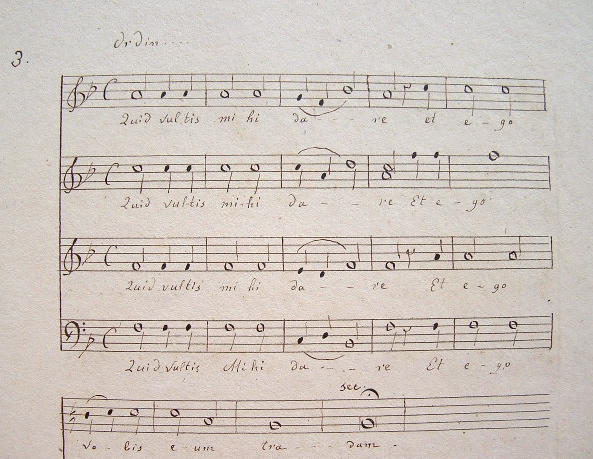 3.
Ordin....
Quid vultis mi hi da - - - re et e - go
Quid vultis mi-hi da - - re Et e - go
Quid vultis mi hi da - - re Et e - go
Quid vultis Mihi da - - - re Et e - go
sec.
vo - bis e - um tra - - - dam -